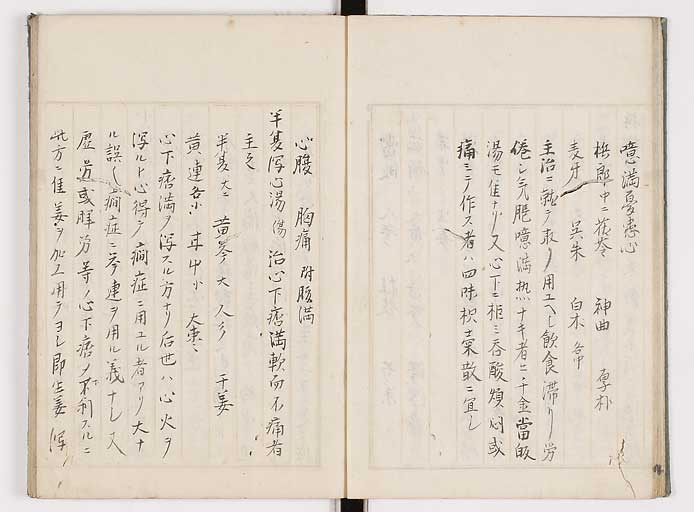 噫満憂恚心
梹郎中ニ 茯苓 神曲 厚朴
麦牙 呉朱 白朮 各中
主治ニ就テ取リ用エヘシ飲食滞リ労
倦シ気胆噫満熱ナキ者ニ千金當皈
湯モ佳ナリ又心下ニ柜ミ呑酸煩悶或
痛ミヲ作ス者ハ四味枳士棗散ニ宜シ
心腹 胸痛 附脹満
半夏瀉心湯 傷 治心下痞満軟而不痛者
主之
半夏大 黄芩大 人参 干姜
黄連各小 甘中小 大棗
心下痞満ヲ瀉スル方ナリ后世ハ心火ヲ
瀉ルト心得テ癇症ニ用エル者アリ大ナ
ル誤シ癇症ニ芩連ヲ用ル義ナシ又
虚労或眩労等ノ心下痞ノ不利スルニ
此方ニ隹姜ヲ加エ用テヨレ即生姜瀉